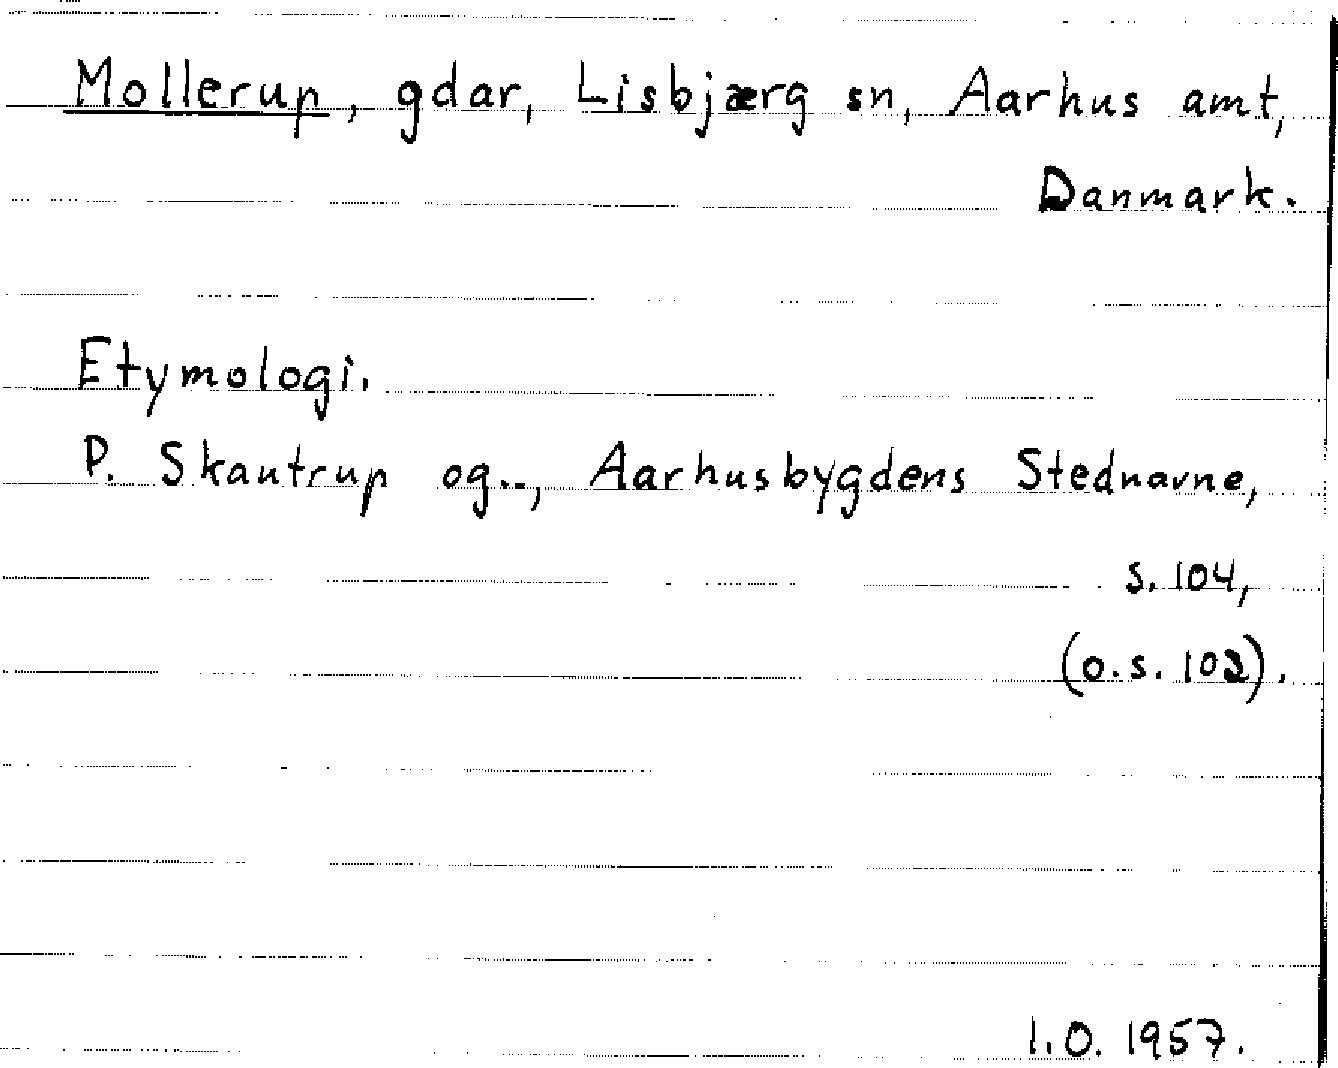 Mollerup, gdar, Lisbjærg sn, Aarhus amt,
Danmark.
Etymologi.
P. Skautrup og.., Aarhusbygdens Stednavne,
s. 104,
(o.s. 102).
I.O. 1957.